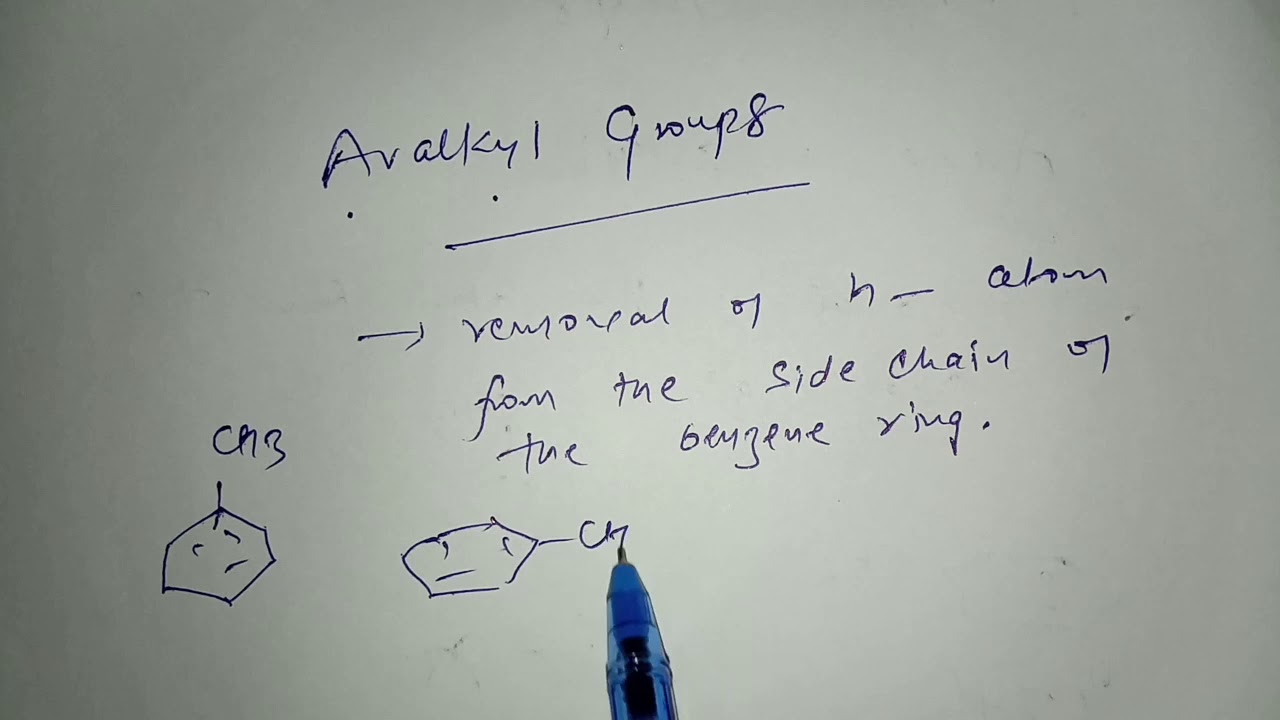 Aralkyl Groups
→ removal of h- atom
from the side chain of
the benzene ring.
CH3
-CH